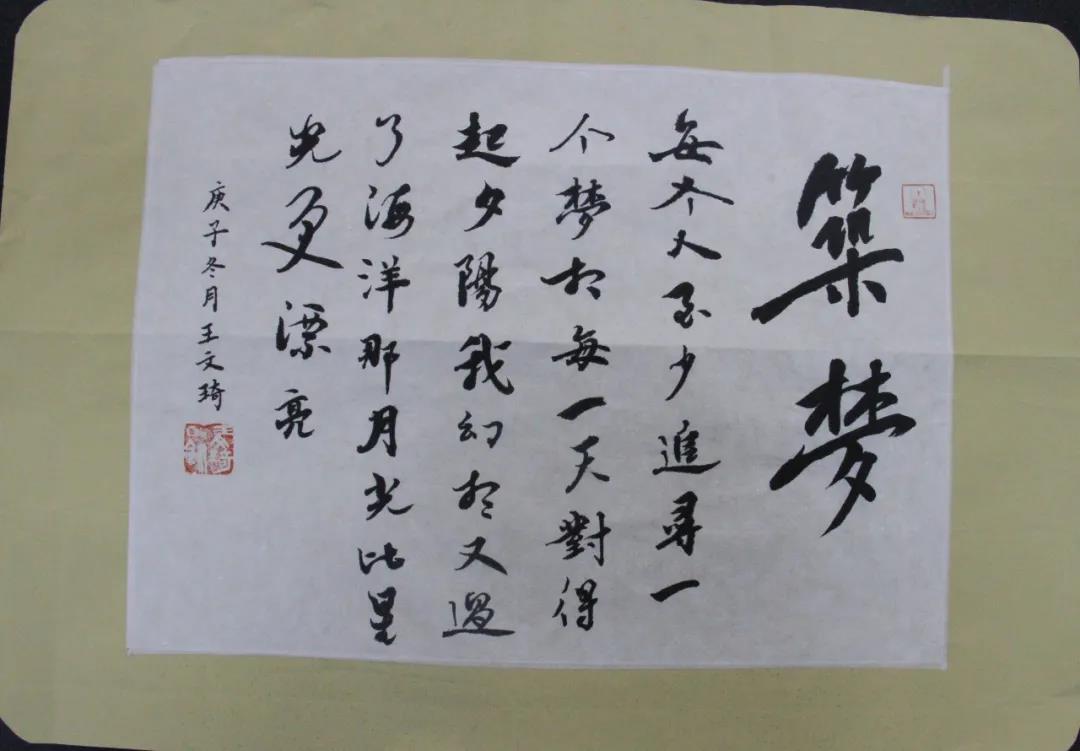 築梦
每个人至少追尋一
个夢想每一天對得
起夕陽我幻想又過
了海洋那月光比星
光更漂亮
庚子冬月王文琦